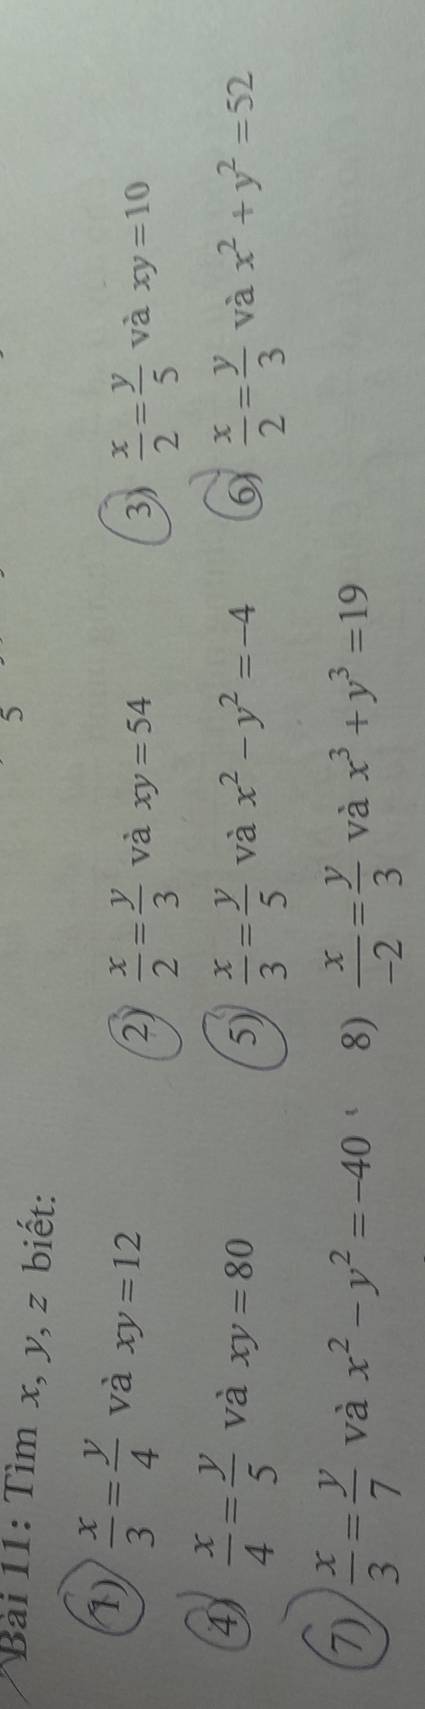 Bài 11: Tìm x, y, z biết:
1) x/3 = y/4 và xy = 12 2) x/2 = y/3 và xy = 54 3) x/2 = y/5 và xy = 10
4) x/4 = y/5 và xy = 80 5) x/3 = y/5 và x² − y² = −4 6) x/2 = y/3 và x² + y² = 52
7) x/3 = y/7 và x² − y² = −40 8) x/−2 = y/3 và x³ + y³ = 19